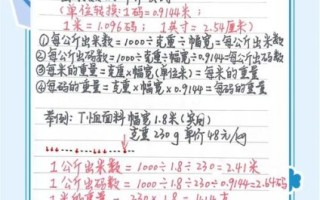 (单位转换:1码=0.9144米;
1米=1.096码; 1英寸=2.54厘米)
①每公斤出米数=1000÷克重÷幅宽=每公斤出米数
②每公斤出码数=1000÷克重÷幅宽÷0.9144=每公斤出码数
③每米的重量=克重×幅宽(单位米)=每米的重量
④每码的重量=克重×幅宽×0.9144=每码的重量
举例:T恤面料 幅宽1.8米(实用)
克重230g 单价48元/kg
1公斤出米数=1000÷1.8÷230=2.41米
1公斤出码数=1000÷1.8÷230÷0.9144=2.64码